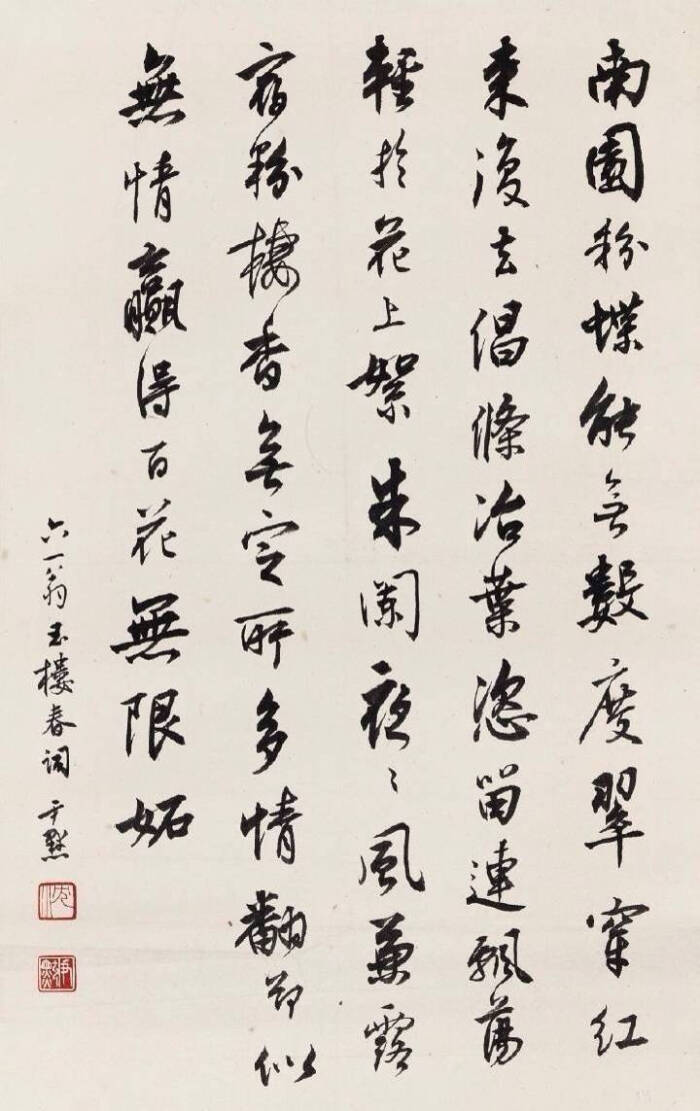 南園粉蝶能無數度翠穿紅
來復去倡條冶葉恣留連飄蕩
輕於花上絮朱闌夜〻風兼露
宿粉棲香無定所多情翻卻似
無情贏得百花無限妬
六一翁玉樓春詞 尹默
沈
尹默